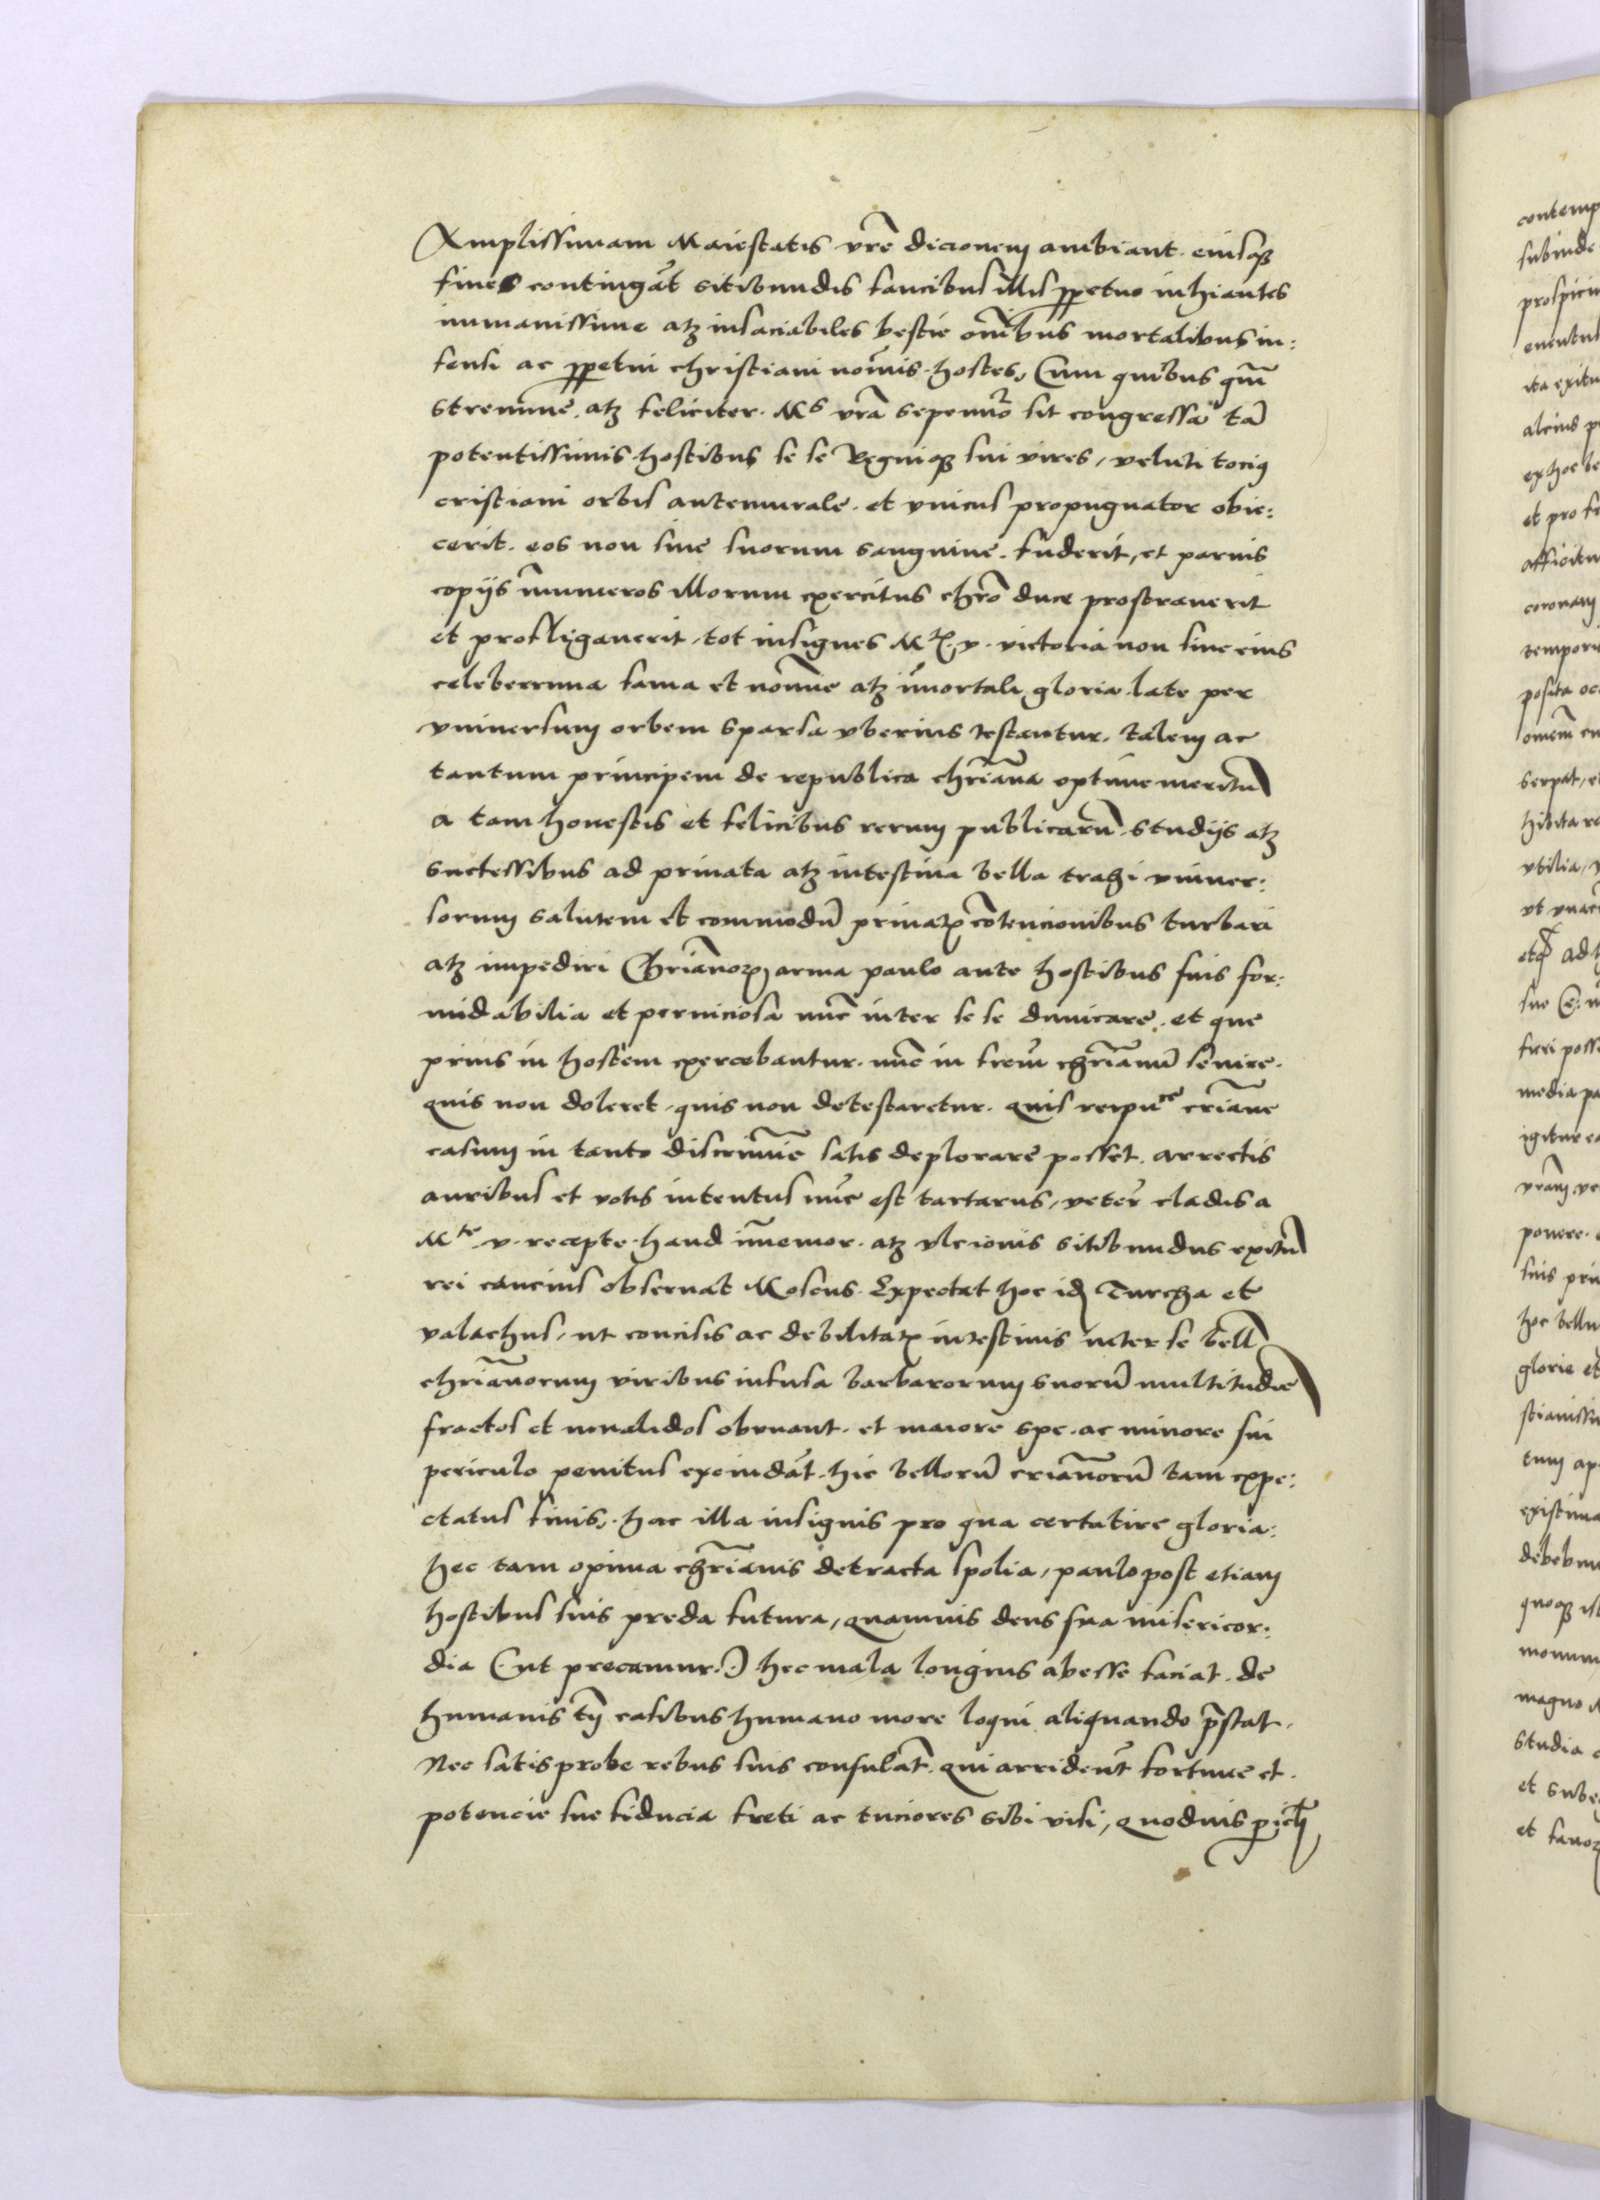 Amplissimam Maiestatis vr̃e dicionem ambiant. eiusqꝫ
fines contingãt sitibundis faucibus illis ꝑpetuo inhiantes
inmanissime atqꝫ insaciabiles bestie om̃ibus mortalibus in:
fensi ac ꝑpetui christiani nom̃is hostes, Cum quibus qm̃
strenuue. atqꝫ feliciter. Mˢ vr̃a sepenũo sit congressa tã
potentissimis hostibus se se Regniqꝫ sui vires, veluti tociꝰ
cristiani orbis antemurale. et vnicus propugnator obie:
cerit. eos non sine suorum sanguine. fuderit, et paruis
copijs ĩnumeros illorum exercitus chr̃o duce prostrauerit
et profligauerit, tot insignes Mtꝭ. v. victoria non sine eius
celeberrima fama et nom̃ne atqꝫ im̃ortali gloria late per
vniuersum orbem sparsa vberius testantur. talem ac
tantum principem de republica chr̃iana optime meritũ
a tam honestis et felicibus rerum publicarũ studijs atqꝫ
suctessibus ad priuata atqꝫ intestina bella trahi vniuer:
sorum salutem et commodũ priuatꝭ cõtencionibus turbari
atqꝫ impediri Chr̃ianoꝝ arma paulo ante hostibus suis for:
midabilia et perniciosa nũc inter se se dimicare. et que
prius in hostem exercebantur. nũc in frem̃ chr̃ianũ seuire.
quis non doleret, quis non detestaretur. quis reipuᶜᵉ cr̃iane
casum in tanto discrim̃ie satis deplorare posset. arrectis
auribus et votis intentus nũc est tartarus, veter̃ cladis a
Mᵗᵉ v. recepte haud im̃emor. atqꝫ vlcionis sitibundus exitũ
rei caucius obseruat Moscus. Expectat hoc idꝫ Turcha et
valachus, ut concisis ac debilitatꝭ intestinis inter se bell̃
chr̃ianorum viribus infusa barbarorum suorũ multitudĩe
fractos et inualidos obruant. et maiore spe. ac minore sui
periculo penitus excindãt. hic bellorũ cr̃ianorũ tam expe:
ctatus finis, hac illa insignis pro qua certatire gloria:
hec tam opima chr̃ianis detracta spolia, paulo post etiam
hostibus suis preda futura, quamuis deus sua misericor:
dia (ut precamur.) hec mala longius abesse faciat. de
humanis tñ casibus humano more loqui aliquando p̃stat.
Nec satis probe rebus suis consulãt. qui arridenṫ fortune et
potencie sue fiducia freti ac tuciores sibi visi, quoduis ꝑicl̃